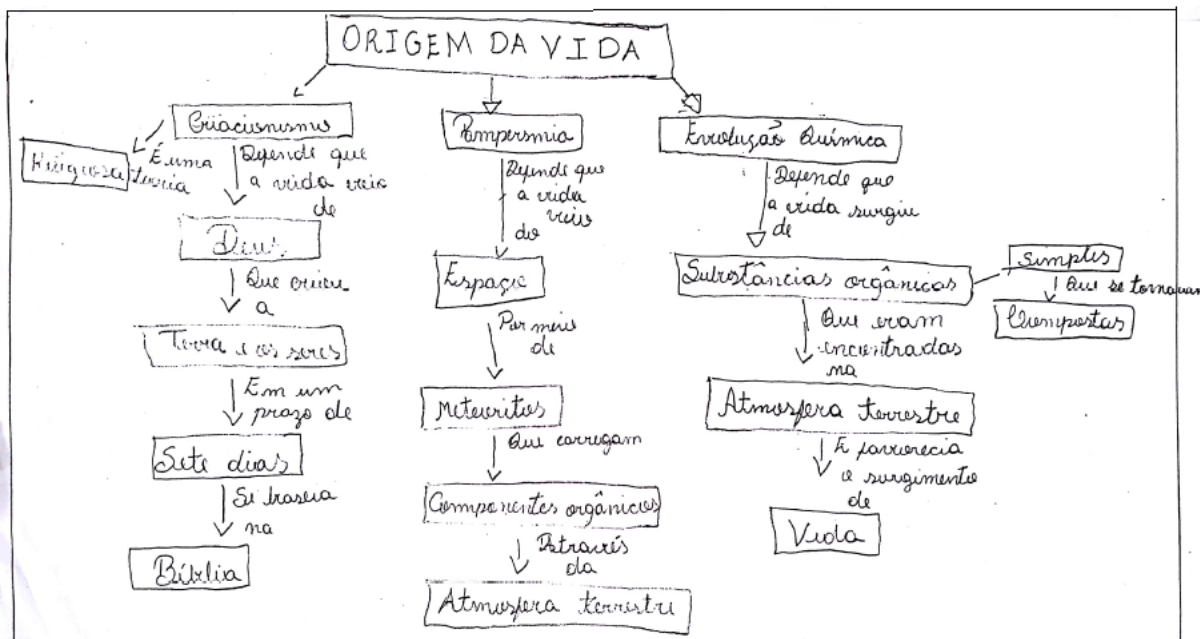 ORIGEM DA VIDA
Criacionismo
É uma
teoria
Religiosa
Defende que
a vida veio
de
Deus
Que criou
a
Terra e os seres
Em um
prazo de
Sete dias
Se baseia
na
Bíblia
Pampersmia
Defende que
a vida
veio
do
Espaço
Por meio
de
Meteoritos
Que carregam
Componentes orgânicos
Através
da
Atmosfera terrestre
Evolução Química
Defende que
a vida surgiu
de
Substâncias orgânicas
Simples
Que se tornavam
Compostas
Que eram
encontradas
na
Atmosfera terrestre
E favorecia
o surgimento
de
Vida